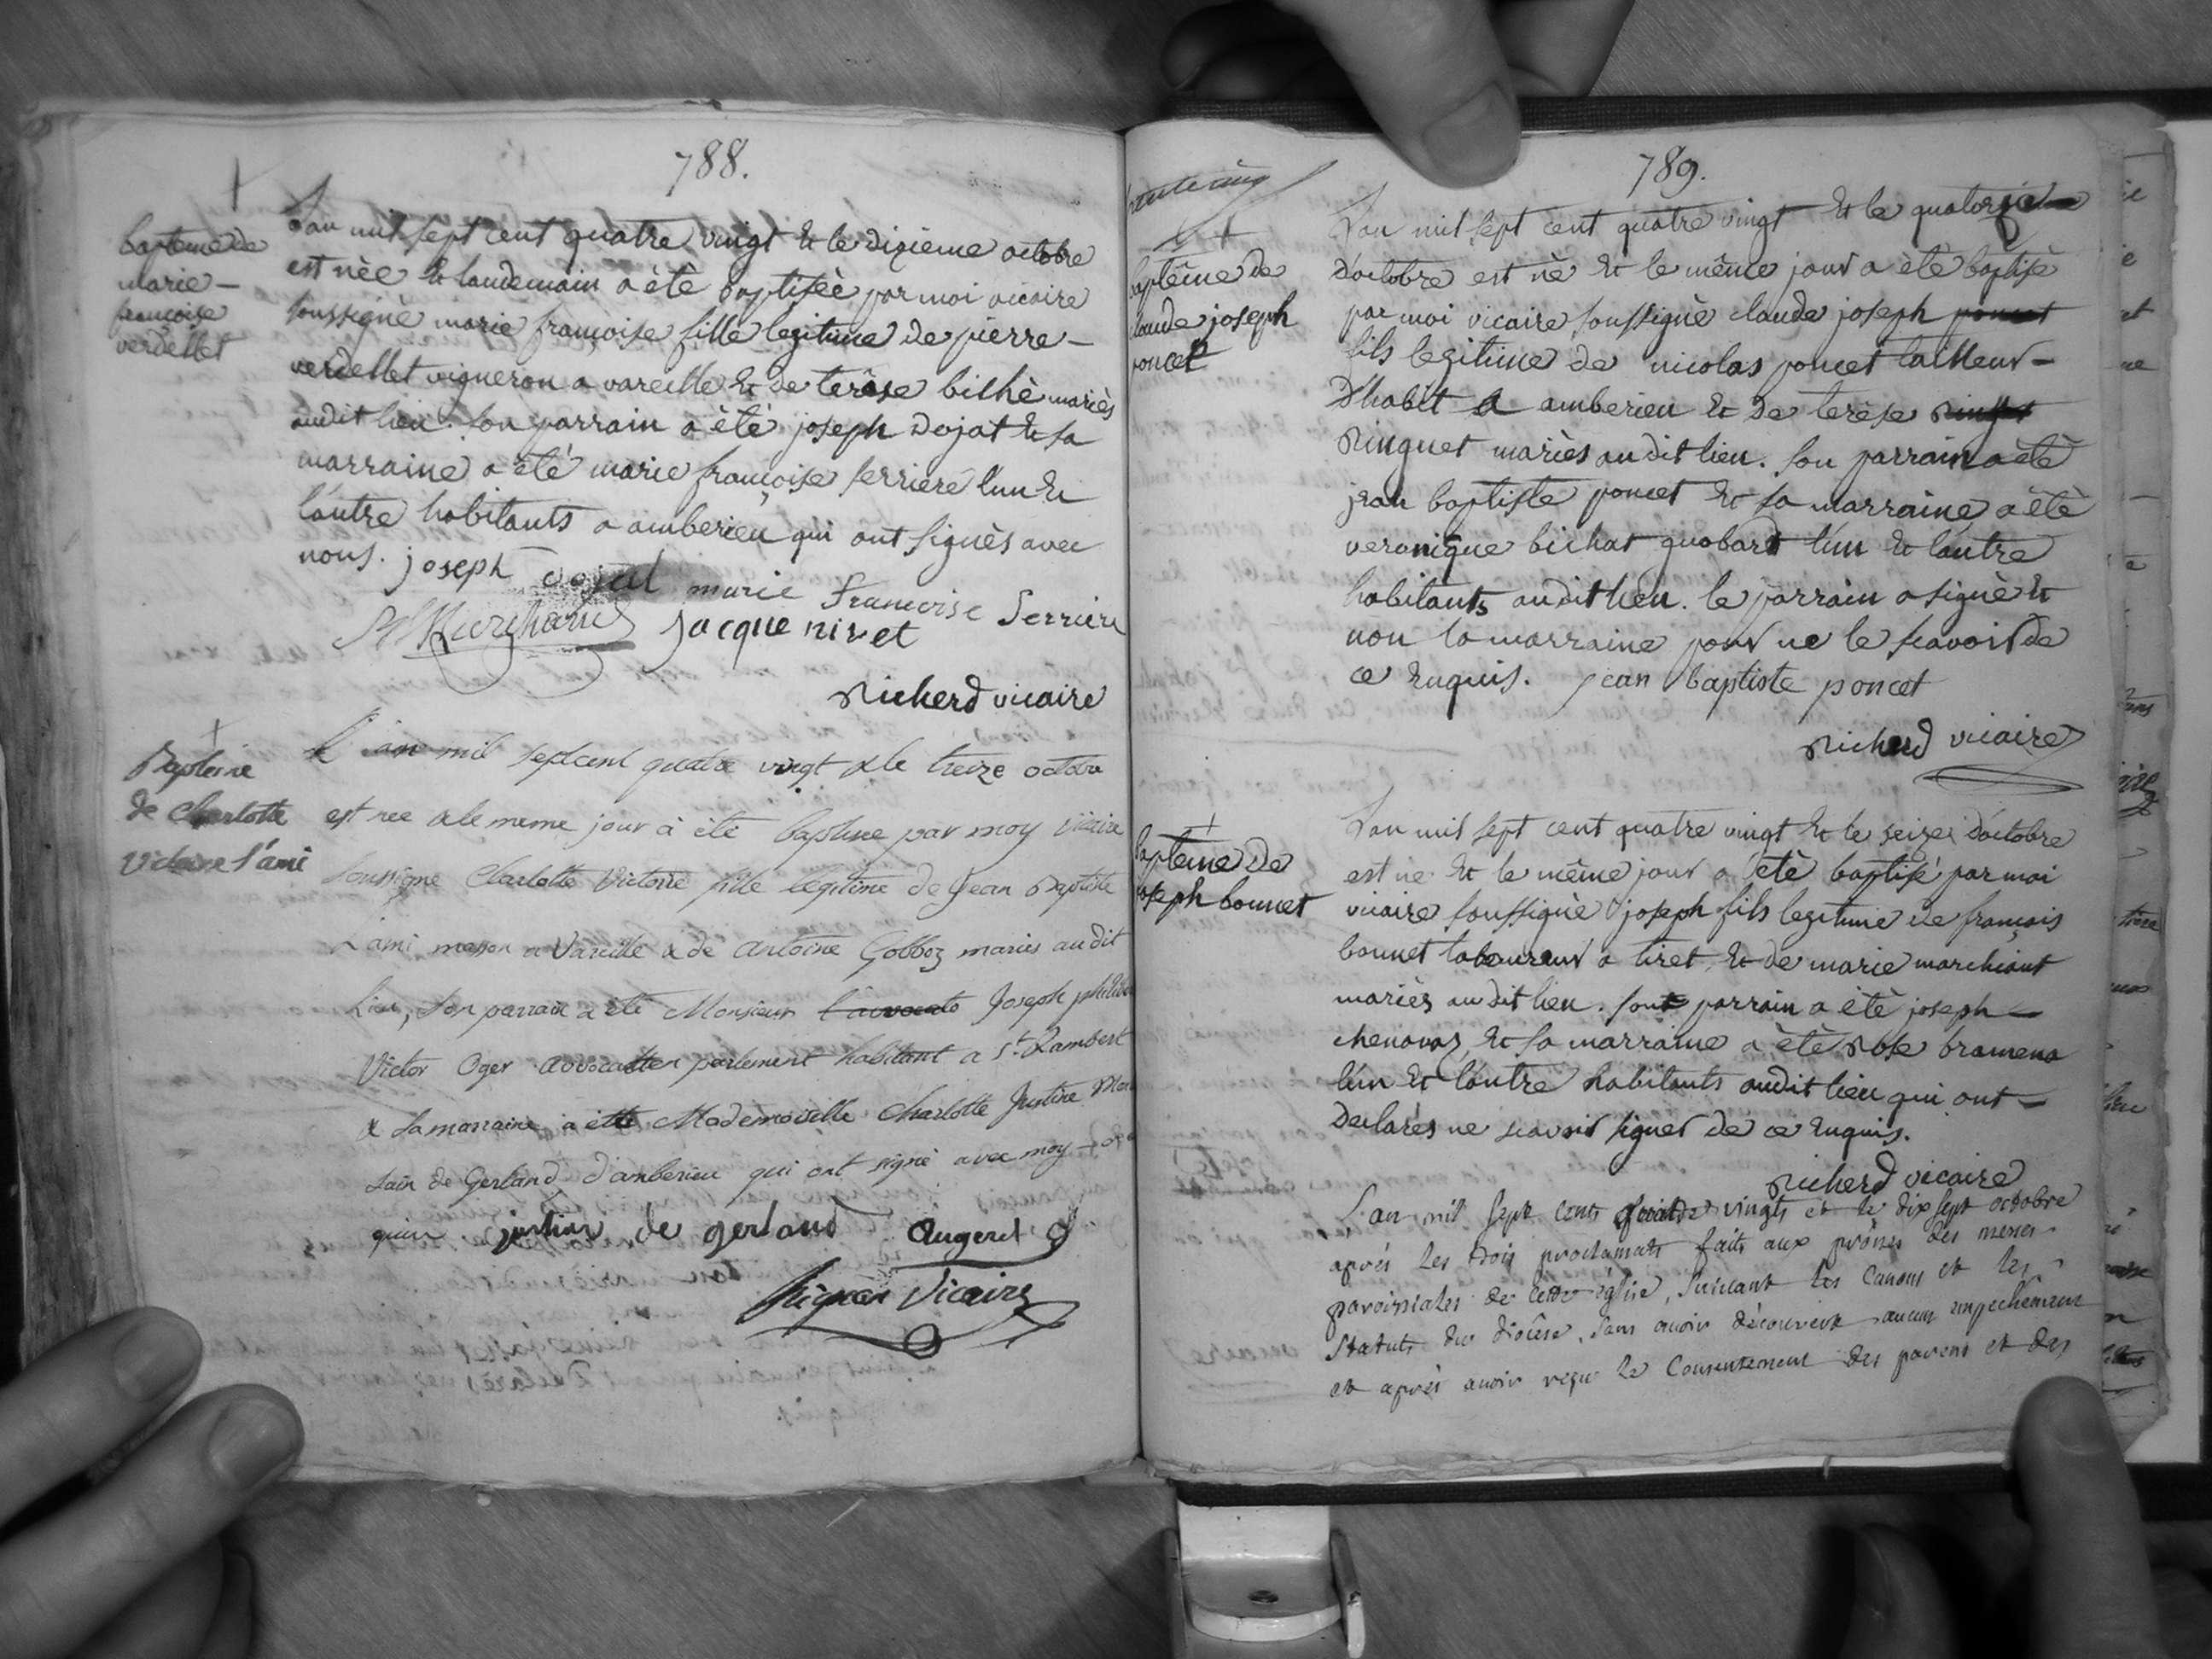 788.
Baptême de
marie -
françoise
verdellet
L'an mil sept cent quatre vingt & le dixieme octobre
est née & landemain a èté baptisèe par moi vicaire
soussigné marie françoise fille legitime de pierre -
verdellet vigneron a vareille & de terèse bilhè mariès
audit lieu. son parrain a èté joseph dojat & sa
marraine a èté marie françoise serriere l'un &
l'autre habitants a amberieu qui ont signès avec
nous. joseph dojat marie francoise serriere
Marchand jacque nivet
Richerd vicaire
Bapteme
de Charlotte
Victoire l'ami
L'an mil septcent quatre vingt & le treize octobre
est nee & le meme jour à été baptisee par moy vicaire
soussigné Charlotte Victoire fille legitime de Jean Baptiste
L'ami masson a Vareille & de antoine Gobboz mariés audit
Lieu, son parrain a été Monsieur l'avocato Joseph philibe
Victor Oger avocat en parlement habitant a St. Rambert
& sa marraine a étté Mademoiselle Charlotte Justine
de Gerland d'amberieu qui ont signé avec moy
justine de gerland Augerd
vicaire
789.
Baptême de
claude joseph
poncet
L'an mil sept cent quatre vingt & le quatorzie
d'octobre est nè & le même jour a èté baptisè
par moi vicaire soussignè claude joseph poncet
fils legitime de nicolas poncet tailleur -
d'habit a amberieu & de terèse
Ringuet mariès audit lieu. son parrain a èté
jean baptiste poncet & sa marraine a èté
veronique bichat guobard l'un & l'autre
habitants audit lieu. le parrain a signè &
non la marraine pour ne le scavoir de
ce enquis. jean baptiste poncet
Richerd vicaire
Baptême de
joseph bonnet
L'an mil sept cent quatre vingt & le seize d'octobre
est né & le même jour a èté baptisé par moi
vicaire soussignè joseph fils legitime de françois
bonnet laboureur a tiret, & de marie marchiant
mariès audit lieu. son parrain a èté joseph -
chenavaz, & sa marraine a èté Rose bramena
l'un & l'autre habitants audit lieu qui ont -
declarès ne scavoir signer de ce enquis.
Richerd vicaire
L'an mil sept cents quatre vingts et le dix sept octobre
aprés les trois proclamats faits aux prônes des messes
paroissiales de cette église, suivant les canons et les
statuts du diocèse, sans avoir découvert aucun empechement
et aprés avoir reçu le Consentement des parens et des